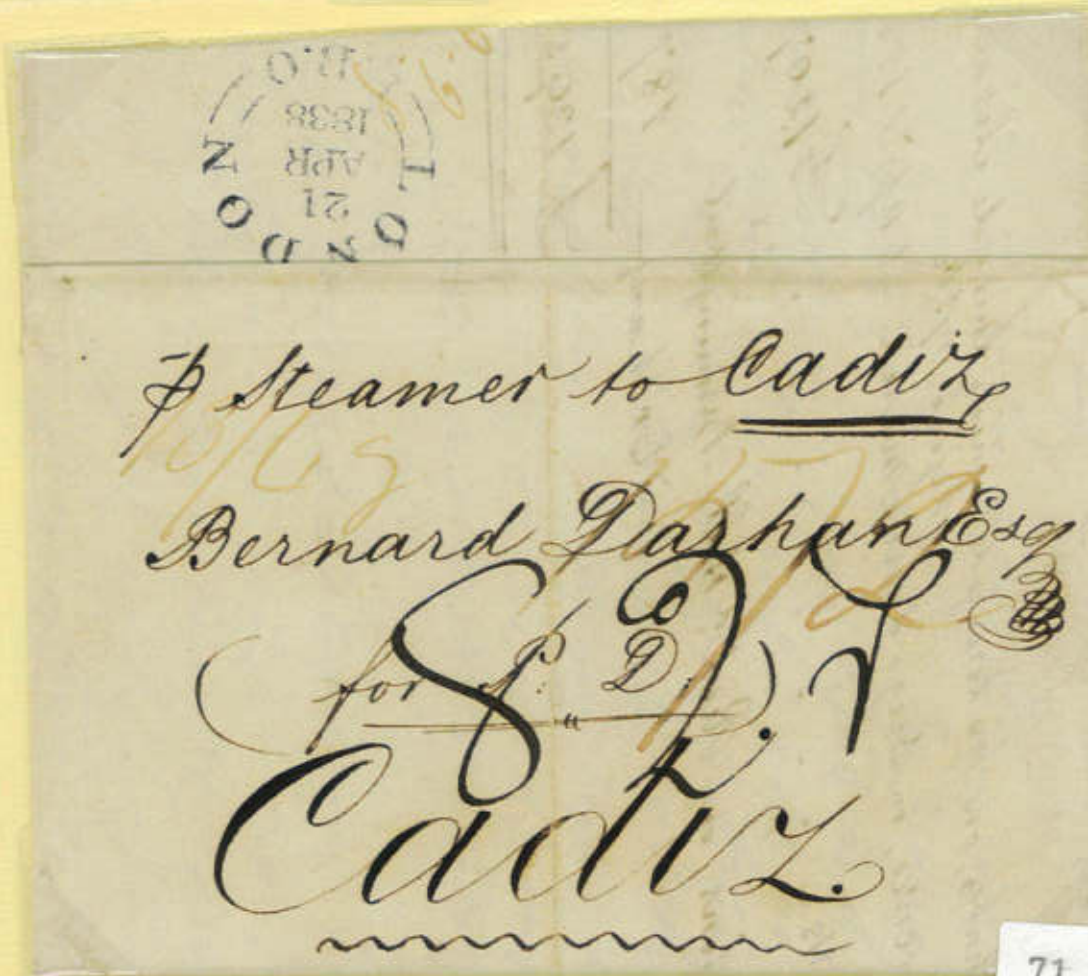 LONDON
21
APR
1838
₽ Steamer to Cadiz
Bernard Darhan Esq
(for P. D.)
Cadiz.
71